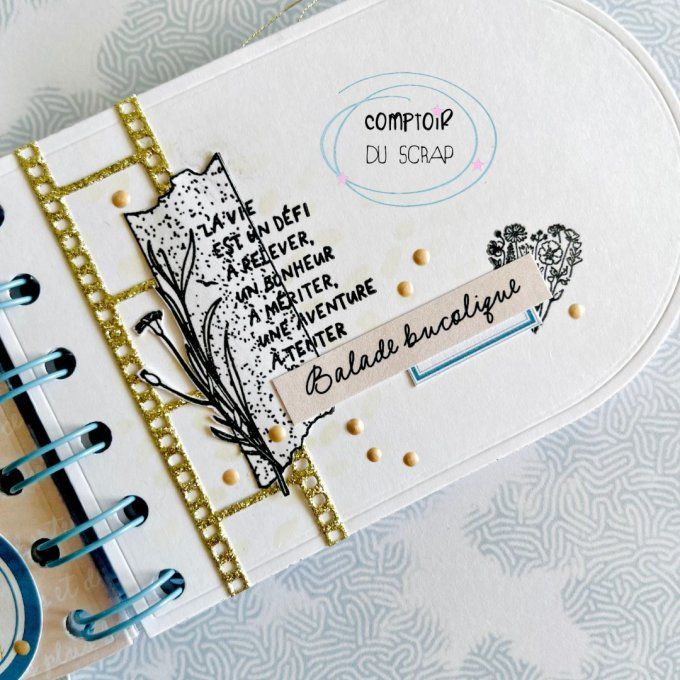 COMPTOIR
DU SCRAP
LA VIE
EST UN DÉFI
À RELEVER,
UN BONHEUR
À MÉRITER,
UNE AVENTURE
À TENTER
Balade bucolique